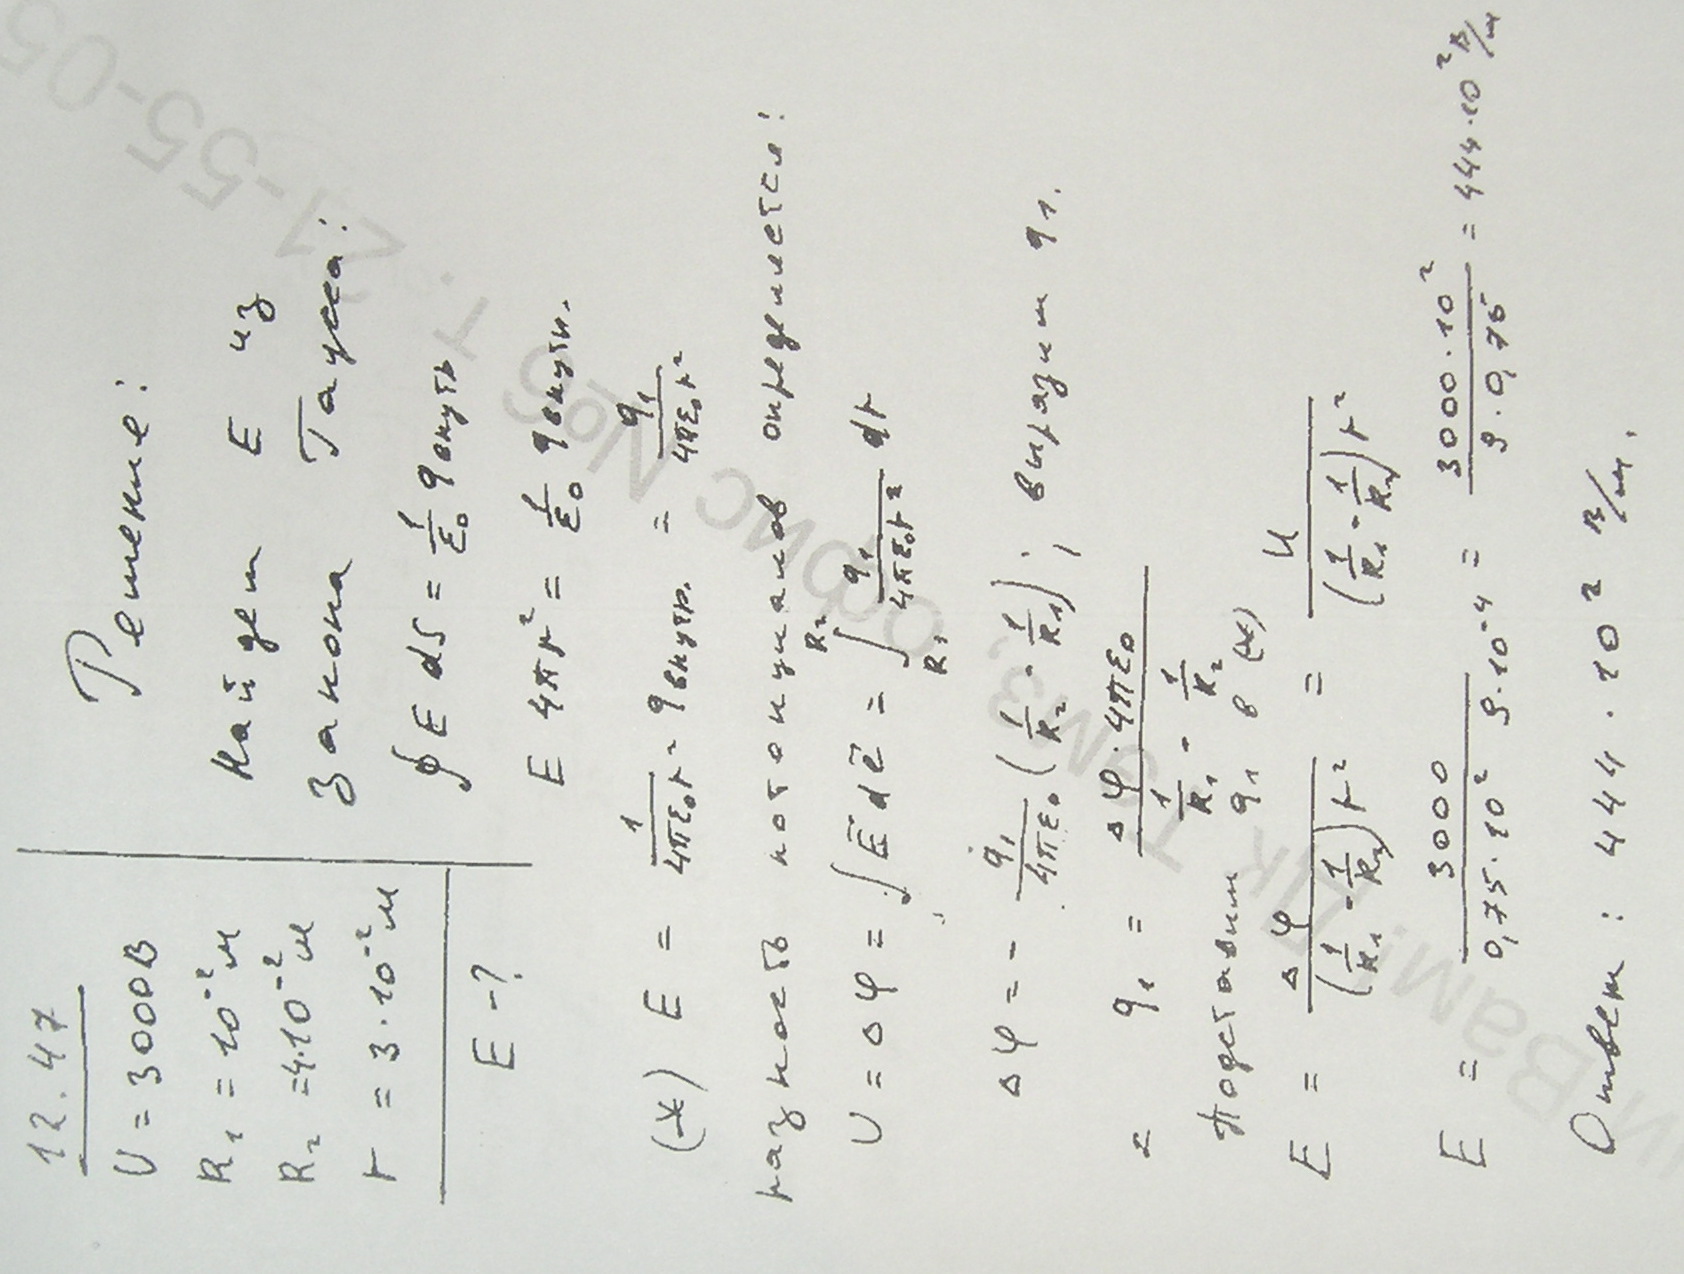 12.47
U = 3000В
R₁ = 10⁻²м
R₂ = 4·10⁻²м
r = 3·10⁻²м
E - ?
Решение:
Найдем E из
закона Гаусса:
∮ E dS = 1/ε₀ q внутр
E 4πr² = 1/ε₀ q внутр.
(*) E = 1/4πε₀r² q внутр. = q₁/4πε₀r²
разность потенциалов определяется:
U = Δφ = ∫ E⃗ dl⃗ = ∫R₁R₂ q₁/4πε₀r² dr
Δφ = - q₁/4πε₀ (1/R₂ - 1/R₁); выразим q₁.
= q₁ = Δφ·4πε₀/1/R₁ - 1/R₂
Подставим q₁ в (*)
E = Δφ/(1/R₁ - 1/R₂)r² = U/(1/R₁ - 1/R₂)r²
E = 3000/0,75·10² 9·10⁻⁴ = 3000·10²/9·0,75 = 444·10² В/м
Ответ: 444·10² В/м.
офис №6 т. 21-55-05